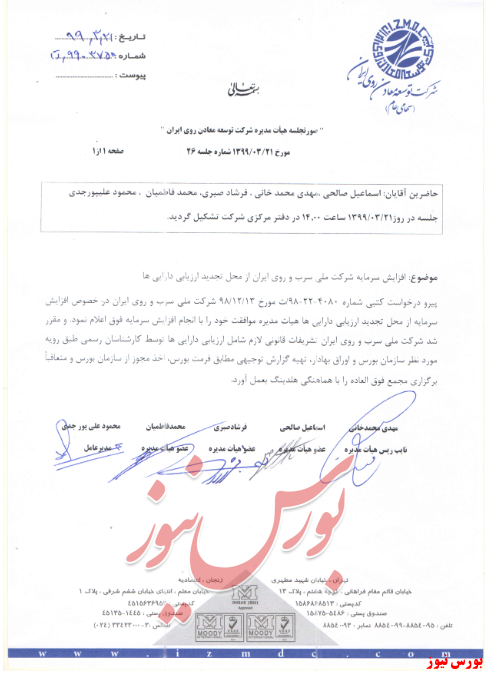 تاریخ: ۹۹٫۳٫۲۱
شماره
پیوست:
I.Z.M.D.C
شرکت توسعه معادن روی ایران
(سهامی عام)
بسمه تعالی
" صورتجلسه هیأت مدیره شرکت توسعه معادن روی ایران "
مورخ ۱۳۹۹/۰۳/۲۱ شماره جلسه ۲۶
صفحه ۱ از ۱
حاضرین آقایان: اسماعیل صالحی ،مهدی محمد خانی ، فرشاد صیری، محمد فاطمیان ، محمود علیپورجدی
جلسه در روز ۱۳۹۹/۰۳/۲۱ ساعت ۱۴.۰۰ در دفتر مرکزی شرکت تشکیل گردید.
موضوع: افزایش سرمایه شرکت ملی سرب و روی ایران از محل تجدید ارزیابی دارایی ها
پیرو درخواست کتبی شماره ۴۰۸۰-۲۲-۹۸/ت مورخ ۹۸/۱۲/۱۳ شرکت ملی سرب و روی ایران در خصوص افزایش
سرمایه از محل تجدید ارزیابی دارایی ها هیات مدیره موافقت خود را با انجام افزایش سرمایه فوق اعلام نمود. و مقرر
شد شرکت ملی سرب و روی ایران تشریفات قانونی لازم شامل ارزیابی دارایی ها توسط کارشناسان رسمی طبق رویه
مورد نظر سازمان بورس و اوراق بهادار، تهیه گزارش توجیهی مطابق فرمت بورس، اخذ مجوز از سازمان بورس و متعاقباً
برگزاری مجمع فوق العاده را با هماهنگی هلدینگ بعمل آورد.
مهدی محمدخانی اسماعیل صالحی فرشاد صیری محمدفاطمیان محمود علی پور جدی
نایب رییس هیأت مدیره عضو هیأت مدیره عضو هیأت مدیره عضو هیأت مدیره مدیرعامل
بورس نیوز
تهران، خیابان شهید مطهری
خیابان قائم مقام فراهانی ، کوچه هشتم ، پلاک ۱۳
کدپستی: ۱۵۸۶۸۶۸۵۱۳
صندوق پستی: ۵۴۸۶-۱۵۸۷۵
تلفن: ۹۵-۸۸۵۴۰۰۹۰ نمابر: ۸۸۵۴۰۰۹۳
زنجان، اعتمادیه
خیابان معلم ، انتهای خیابان ششم شرقی ، پلاک ۱
صندوق پستی: ۱۴۴۵-۴۵۱۹۵
MOODY
MOODY
www.izmdc.com
بورس نیوز